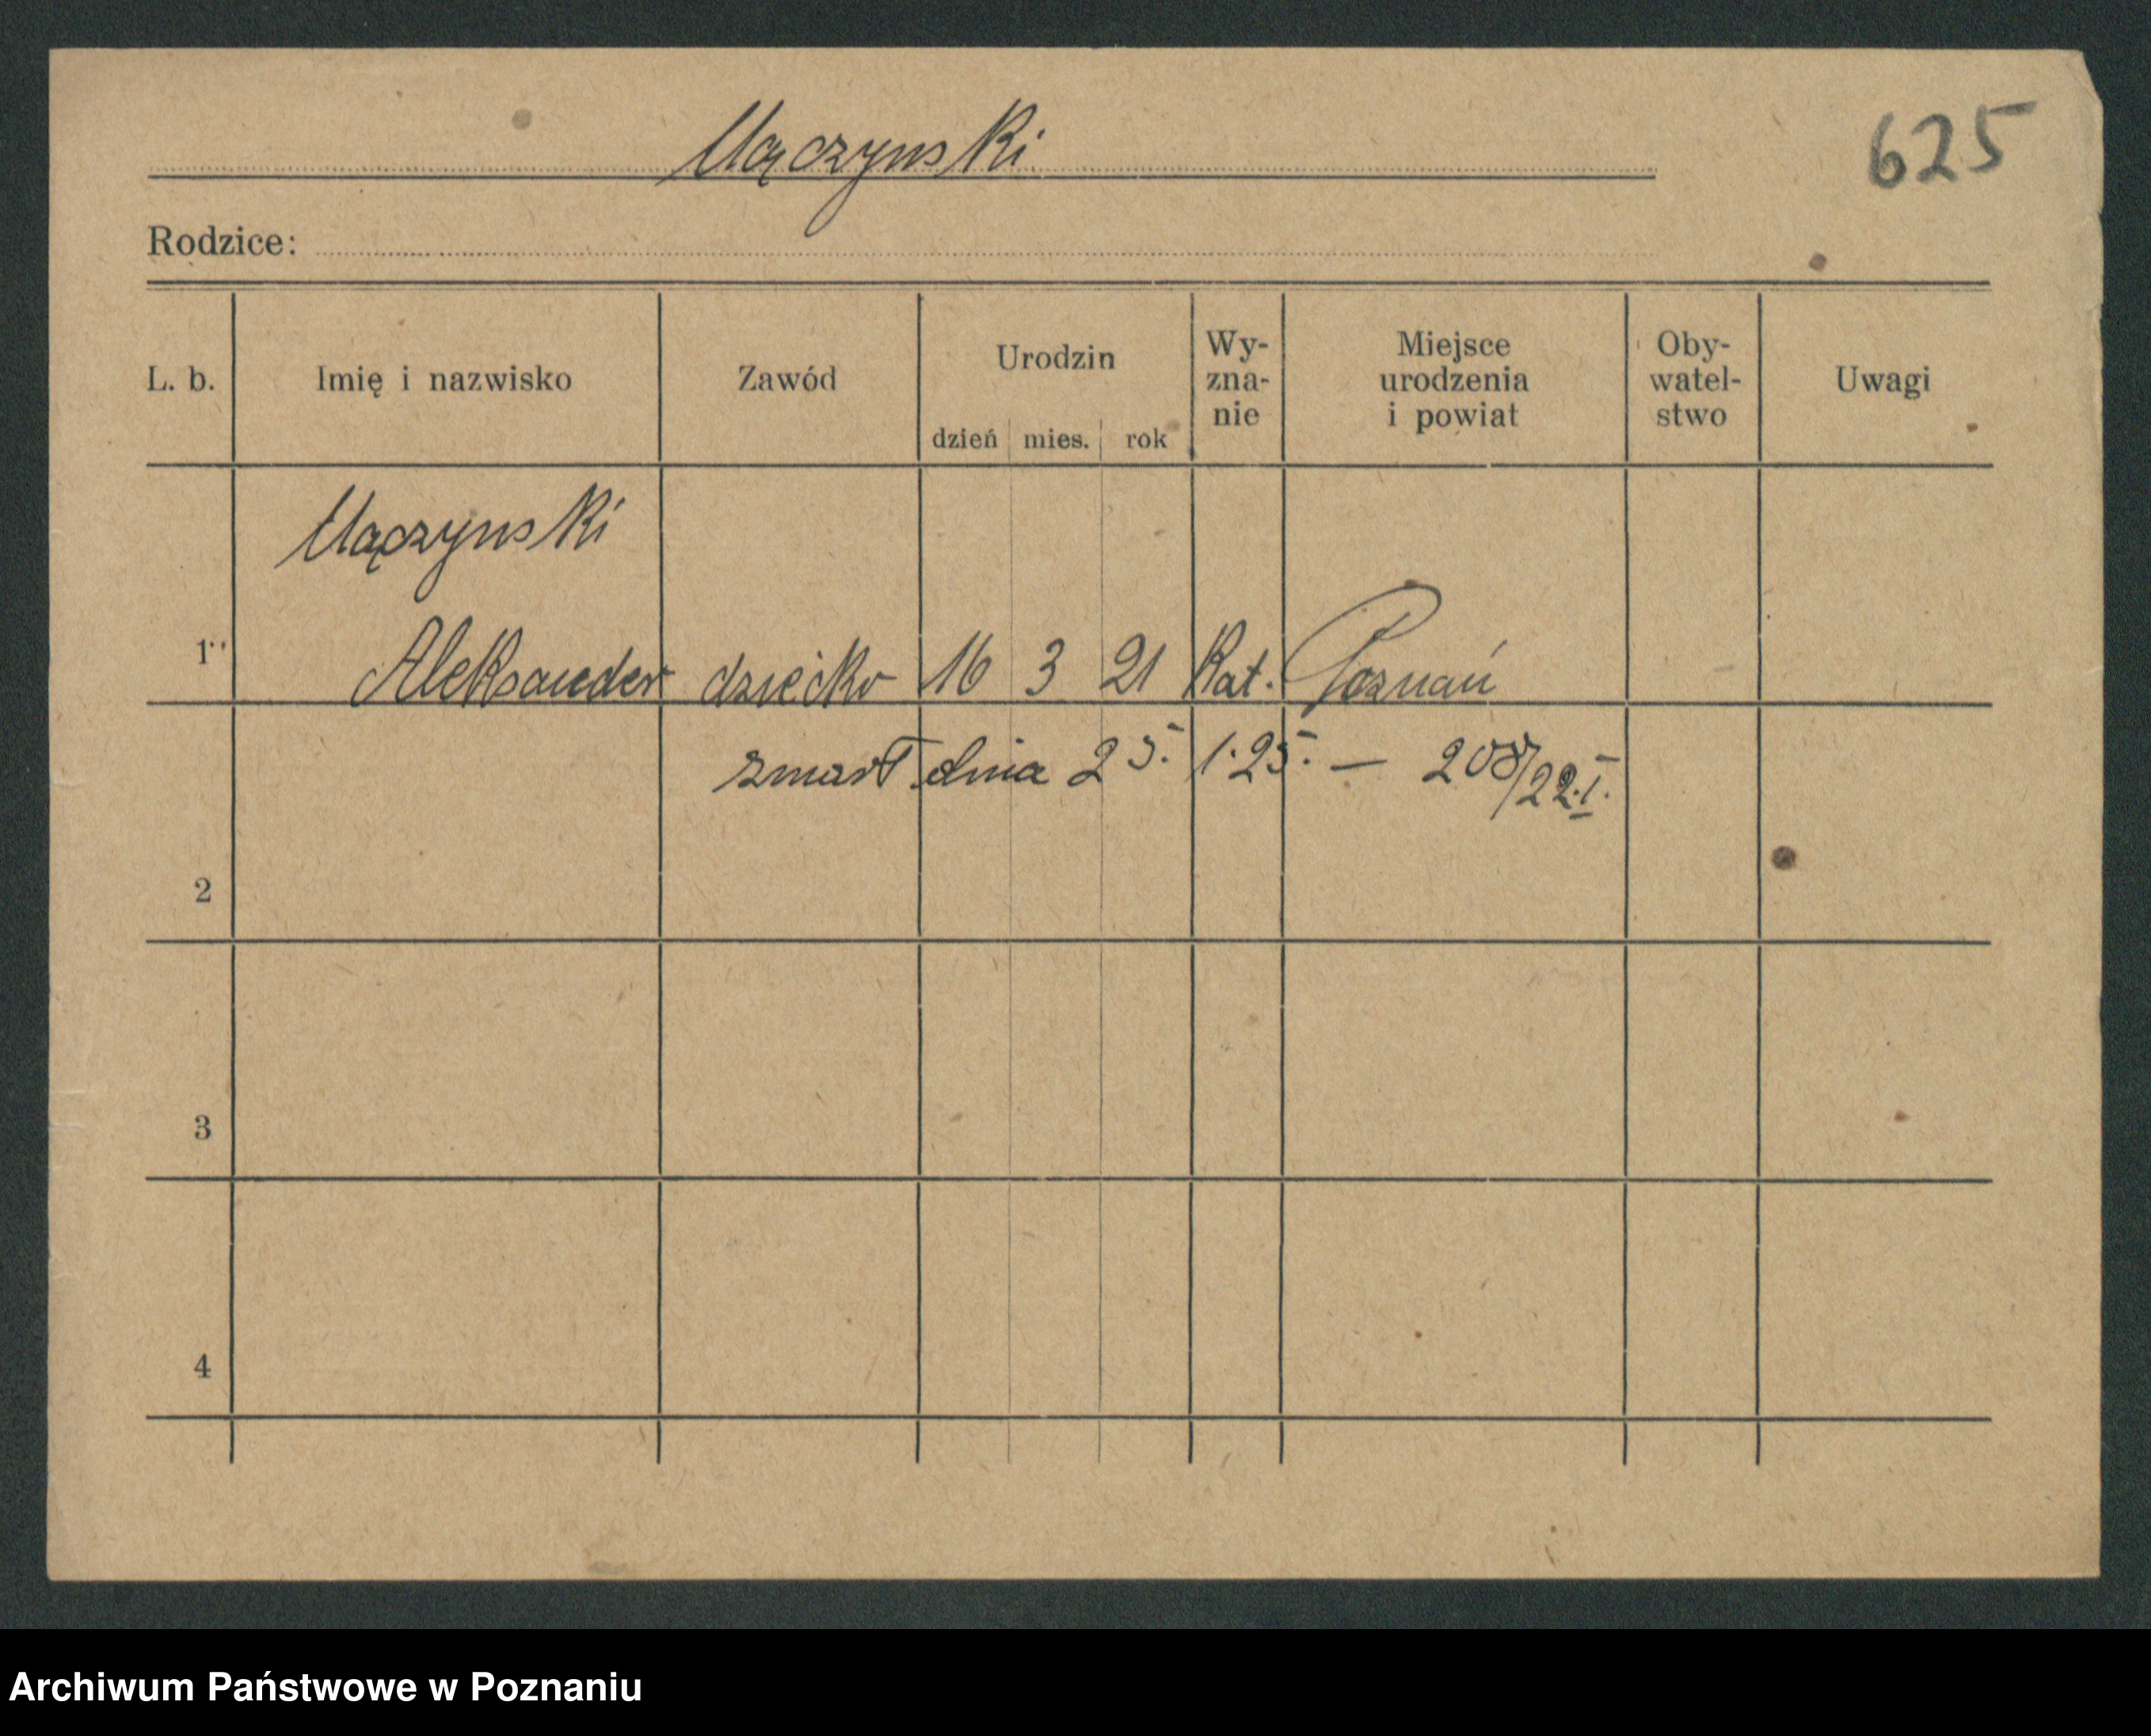 Mączynski
625
Rodzice:
L. b.
Imię i nazwisko
Zawód
Urodzin
dzień mies. rok
Wy-
zna-
nie
Miejsce
urodzenia
i powiat
Oby-
watel-
stwo
Uwagi
Mączynski
1 Aleksander dziecko 16 3 21 Kat. Poznań
zmarł dnia 25. 1.25. — 208/22.I.
2
3
4
Archiwum Państwowe w Poznaniu